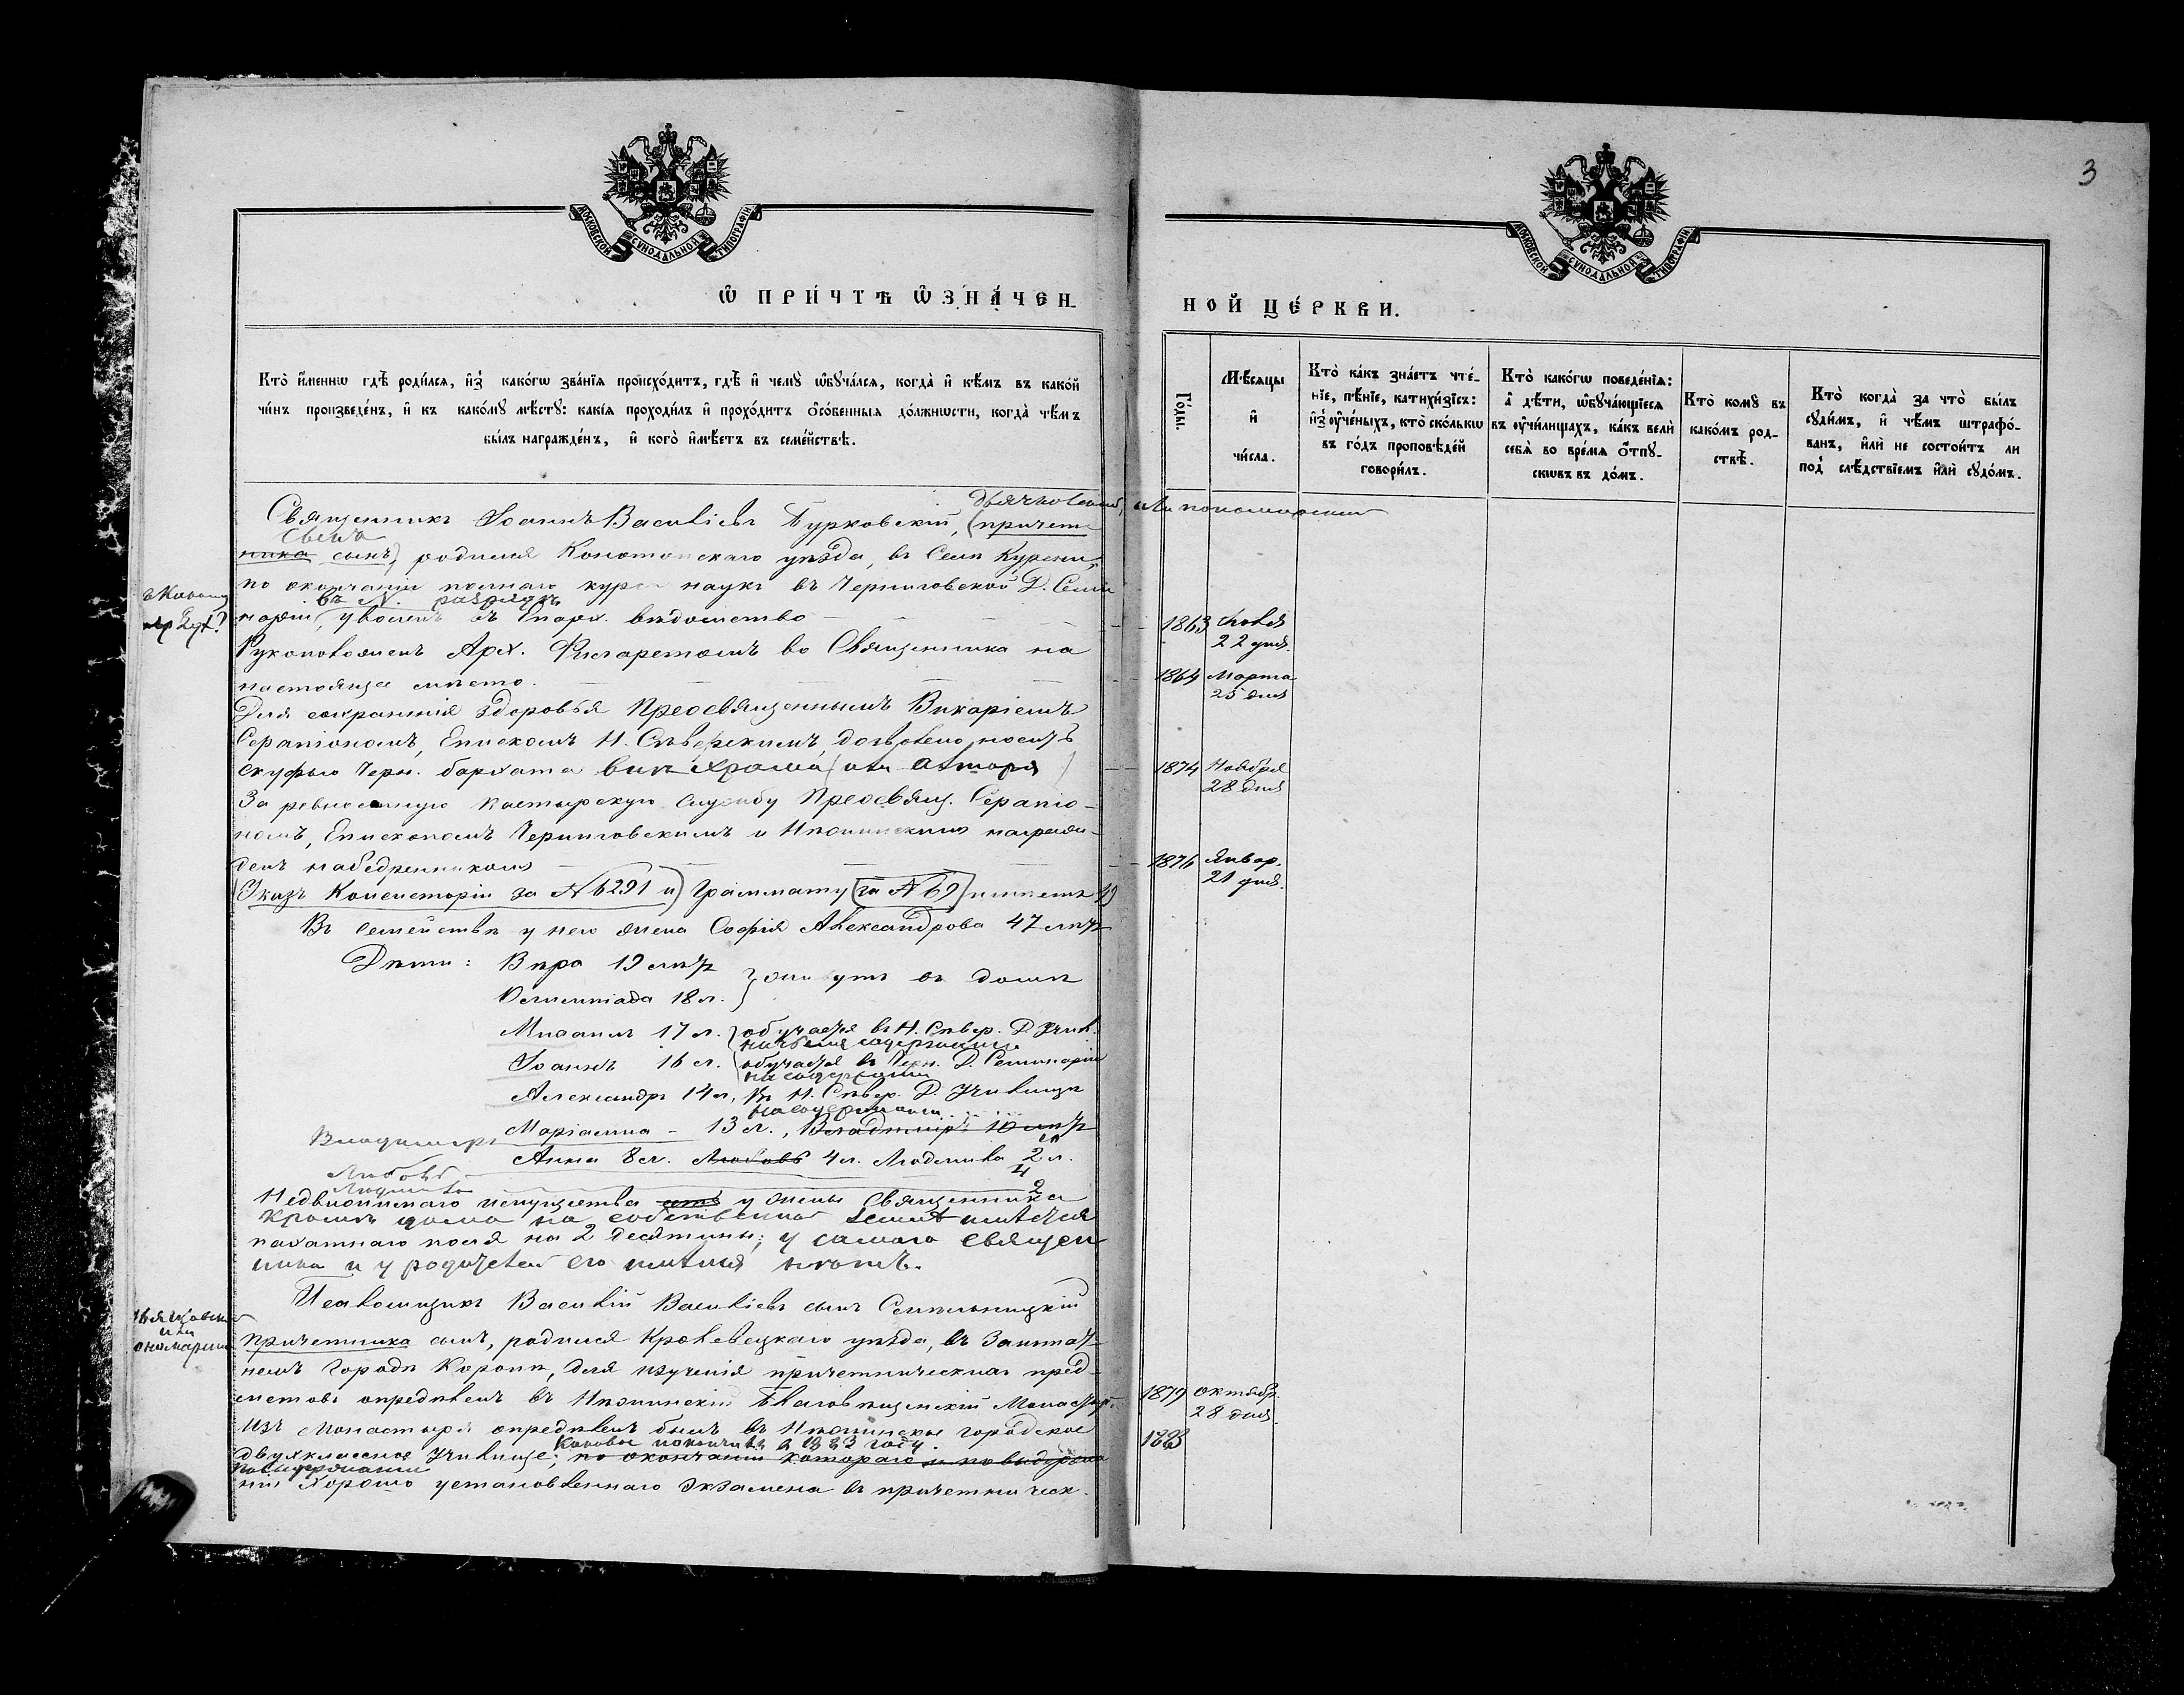 3
МОСКОВСКОЙ СѴНОДАЛЬНОЙ ТИПОГРАФІИ
МОСКОВСКОЙ СѴНОДАЛЬНОЙ ТИПОГРАФІИ
Ѡ ПРИ́ЧТѢ ѠЗНА́ЧЕН-
НОЙ ЦЕ́РКВИ.
Кто̀ и҆́меннѡ гдѣ̀ роди́лсѧ, и҆з̾ како́гѡ зва́нїѧ происхо́дитъ, гдѣ̀ и҆ чемꙋ̀ ѡ҆бꙋча́лсѧ, когда̀ и҆ кѣ́мъ въ како́й
чи́нъ произведе́нъ, и҆ къ како́мꙋ мѣ́стꙋ: какі́ѧ проходи́лъ и҆ прохо́дитъ ѻ҆со́бенныѧ до́лжнѡсти, когда̀ чѣ́мъ
бы́лъ награжде́нъ, и҆ кого̀ и҆мѣ́етъ въ семе́йствѣ.
Го́ды.
Мѣ́сѧцы
и҆
чи́сла.
Кто̀ ка́къ зна́етъ чте́-
нїе, пѣ́нїе, катихи́зїсъ:
и҆з̾ ᲂу҆че́ныхъ, кто̀ ско́лькѡ
въ го́дъ проповѣ́дей
говори́лъ.
Кто̀ како́гѡ поведе́нїѧ:
а҆ дѣ́ти, ѡ҆бꙋча́ющїесѧ
въ ᲂу҆чи́лищахъ, ка́къ велѝ
себѧ̀ во вре́мѧ ѻ҆́тпꙋ-
скѡвъ въ до́мъ.
Кто̀ комꙋ̀ въ
како́мъ род-
ствѣ̀.
Кто̀ когда̀ за что̀ бы́лъ
сꙋди́мъ, и҆ чѣ́мъ штрафо́-
ванъ, и҆лѝ не состои́тъ ли
под̾ слѣ́дствїемъ и҆лѝ сꙋдо́мъ.
Дьячковскій, или пономарскій
Священникъ Іоаннъ Василіевъ Бурковскій, (причет-
сынъ
ника сынъ) родился Конотопскаго уѣзда, въ Селѣ Курени,
по окончаніи полнаго курса наукъ въ Черниговской Д. Семи
въ разрядѣ
наріи, уволенъ въ Епарх. вѣдомство
1863
22 дня.
Рукоположенъ Арх. Филаретомъ во Священника на
настоящее мѣсто.
1864 Марта
25 дня
Для сохраненія здоровья Преосвященнымъ Викаріемъ
Серапіономъ, Епископомъ Н. Сѣверскимъ, дозволено носить
скуфью черн. бархата внѣ храма (или алтаря)
1874 Ноября
28 дня
За ревностную пастырскую службу Преосвящ. Серапіо-
номъ, Епископомъ Черниговскимъ и Нѣжинскимъ награж-
денъ набедренникомъ
1876 Январ.
21 дня.
(Указъ Консисторіи за № 6291 и) Граммату (за № 69) имѣетъ
Въ семействѣ у него жена Софія Александрова 47 лѣтъ
Дѣти: Вѣра 19 лѣтъ
Олимпіада 18 л. } живутъ въ домѣ
Михаилъ 17 л. обучается въ Н. Сѣвер. Д. Учил.
на своемъ содержаніи
Іоаннъ 16 л. обучается въ Черн. Д. Семинаріи
на содержаніи
Александръ 14 л, въ Н. Сѣвер. Д. Училищѣ
на содержаніи
Владимиръ
Маріамна - 13 л., Владиміръ 10 лѣтъ
Анна 8 л. Любовь 4 л. Людмила 2 л.
Любовь 4
Людмила 2
Недвижимаго имущества есть у жены священника
кромѣ дома на собственной землѣ имѣется
пахатнаго поля на 2 десятины; у самого священ
ника и у родителей его имѣнія нѣтъ.
Дьячковскій
или
пономарскій
Псаломщикъ Василій Василіевъ сынъ Синельницкій
причетника сынъ, родился Кролевецкаго уѣзда, въ Заштат-
немъ городѣ Коропѣ, для изученія причетническихъ пред-
метовъ опредѣленъ въ Нѣжинскій Благовѣщенскій Монастыр.
1879 Октябр.
28 дня.
Изъ Монастыря опредѣленъ былъ въ Нѣжинское городское
1883
каковое покончилъ въ 1883 году.
двухклассное Училище; по окончаніи котораго и по выдержа
по выдержаніи
ніи хорошо установленнаго экзамена въ причетническ.